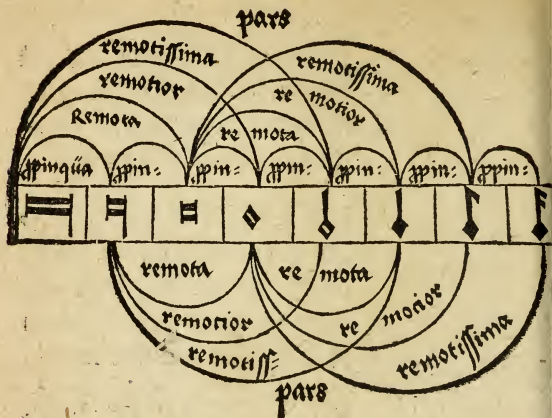 pars
remotissima
remotissima
remotior
re motior
Remota
re mota
ꝓpinqüa ꝓpin: ꝓpin: ꝓpin: ꝓpin: ꝓpin: ꝓpin:
remota
re mota
remotior
re mocior
remotiss:
remotissima
pars